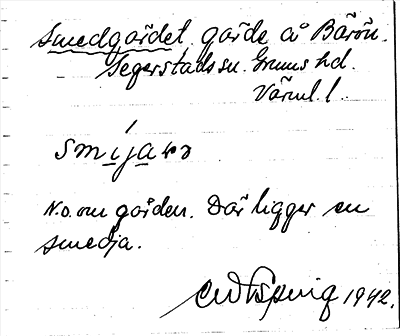 Smedgärdet, gärde å Bärön.
Segerstads sn. Grums hd.
Värml. l.
smijarn
N.o. om gården. Där ligger en
smedja.
1942.